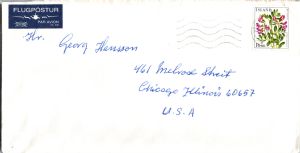 FLUGPÓSTUR
PAR AVION
ÍSLAND
Hr. Georg Hansson
461 Melrose Street
Chicago Illinois 60657
U.S.A